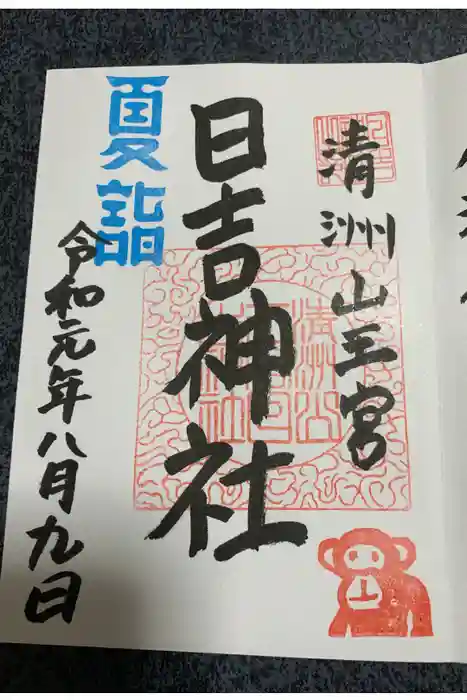 清洲山王宮
日吉神社
夏詣
令和元年八月九日